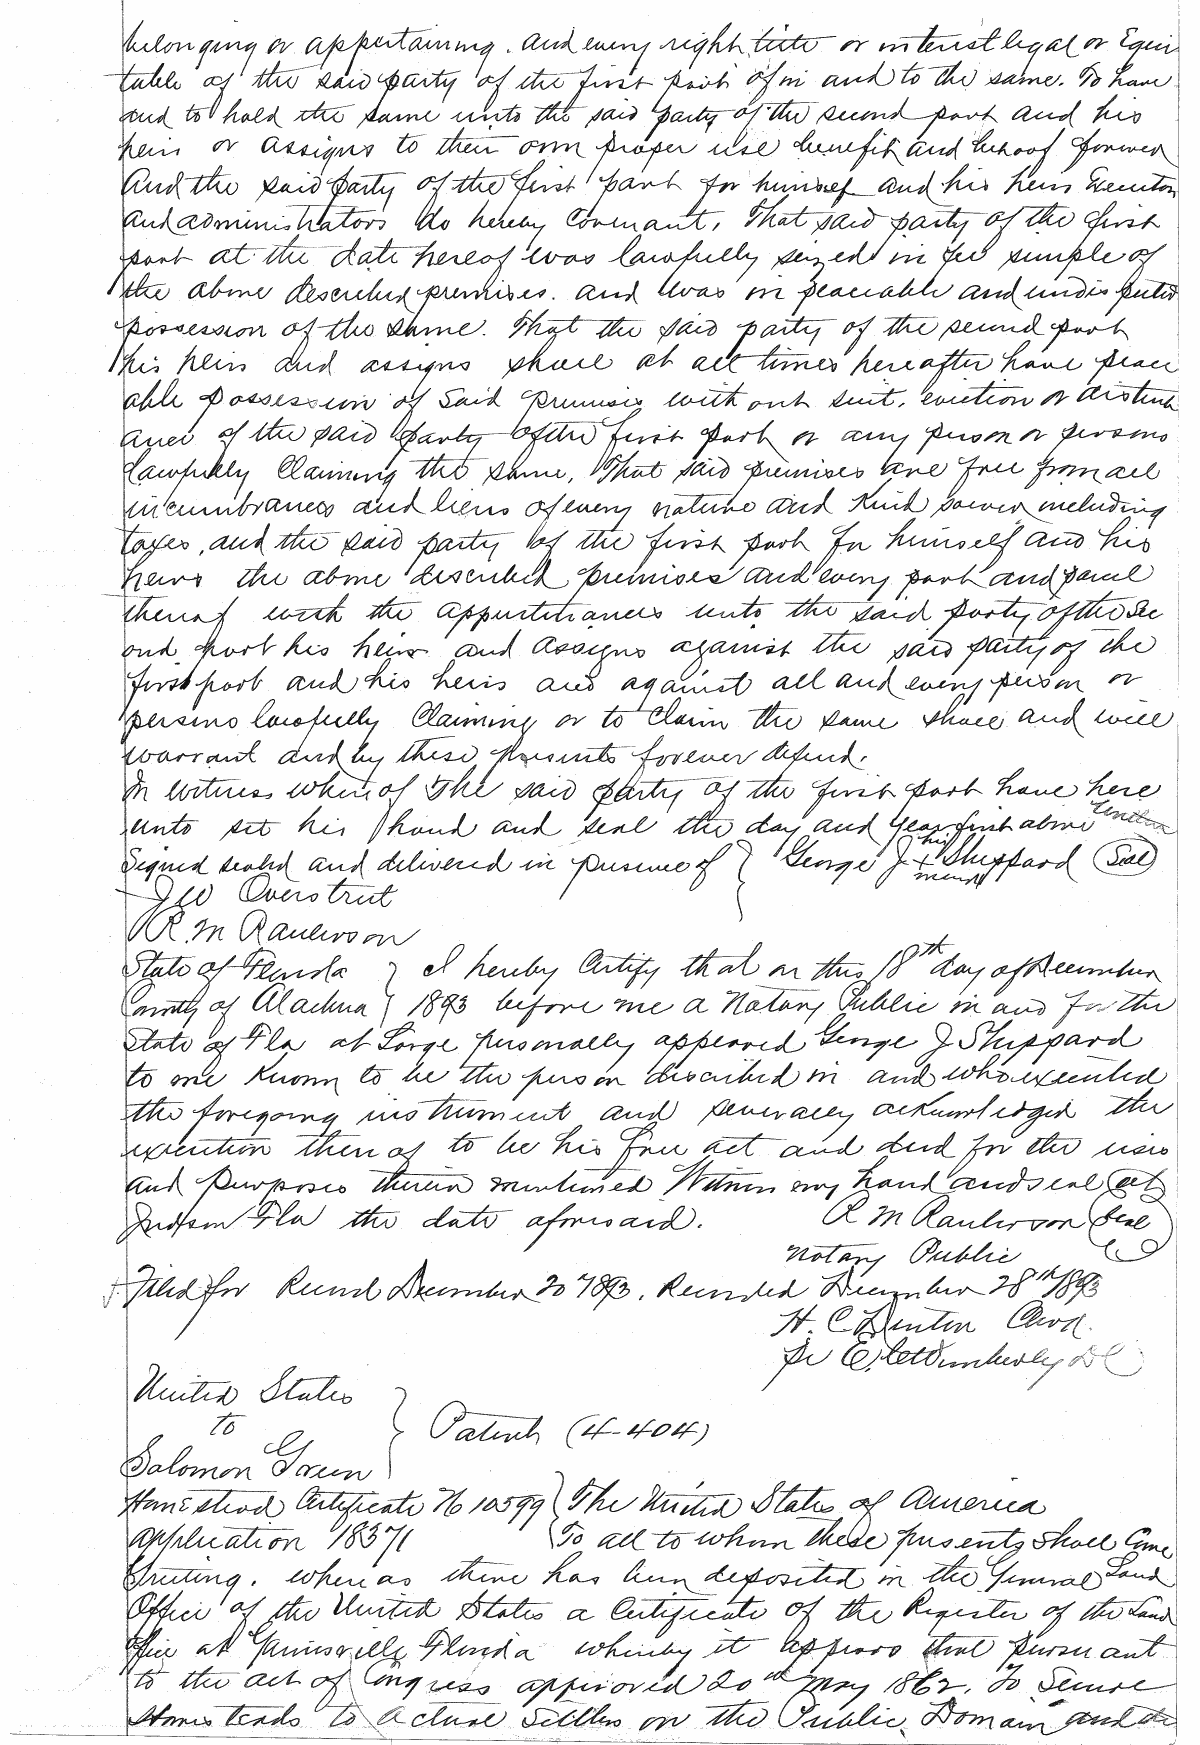 belonging or appertaining. and every right, title or interest legal or Equi
table of the said party of the first part of in and to the same. To have
and to hold the same unto the said party of the second part and his
heirs or assigns to their own proper use benefit and behoof forever
And the said party of the first part for himself and his heirs Executors
and administrators do hereby Covenant, That said party of the first
part at the date hereof was lawfully seized in fee simple of
the above described premises. and was in peaceable and undisputed
possession of the same. That the said party of the second part
his heirs and assigns shall at all times hereafter have peace
able possession of Said premises with out suit, eviction or disturb
ance of the said party of the first part or any person or persons
lawfully Claiming the same, That said premises are free from all
incumbrances and liens of every nature and Kind soever including
taxes, and the said party of the first part for himself and his
heirs the above described premises and every part and parcel
thereof with the appurtenances unto the said party of the Sec
ond part his heirs and assigns against the said party of the
first part and his heirs and against all and every person or
persons lawfully Claiming or to Claim the same shall and will
warrant and by these presents forever defend.
In witness whereof The said party of the first part have here
unto set his hand and seal the day and year first above written
Signed sealed and delivered in presence of } George J his + mark Sheppard (Seal)
J W Overstreet
R. M Raulerson
State of Florida } I hereby Certify that on this 18th day of December
County of Alachua } 1893 before me a Notary Public in and for the
State of Fla at Large personally appeared George J Sheppard
to me Known to be the person described in and who executed
the foregoing instrument and severally acknowledged the
execution thereof to be his free act and deed for the uses
and purposes therein mentioned Witness my hand and seal at
Judson Fla the date aforesaid. R M Raulerson (Seal)
Notary Public
Filed for Record December 20th 1893. Recorded December 28th 1893
H. C. Denton Clerk.
Pr E. C. Wimberley D C
United States
to } Patent (4-404)
Salomon Green
Homestead Certificate No 10599 } The United States of America
Application 18371 } To all to whom these presents shall Come
Greeting. whereas there has been deposited in the General Land
Office of the United States a Certificate of the Register of the Land
office at Gainesville Florida whereby it appears that pursuant
to the act of Congress approved 20th May 1862, To Secure
Homesteads to actual Settlers on the Public Domain and the